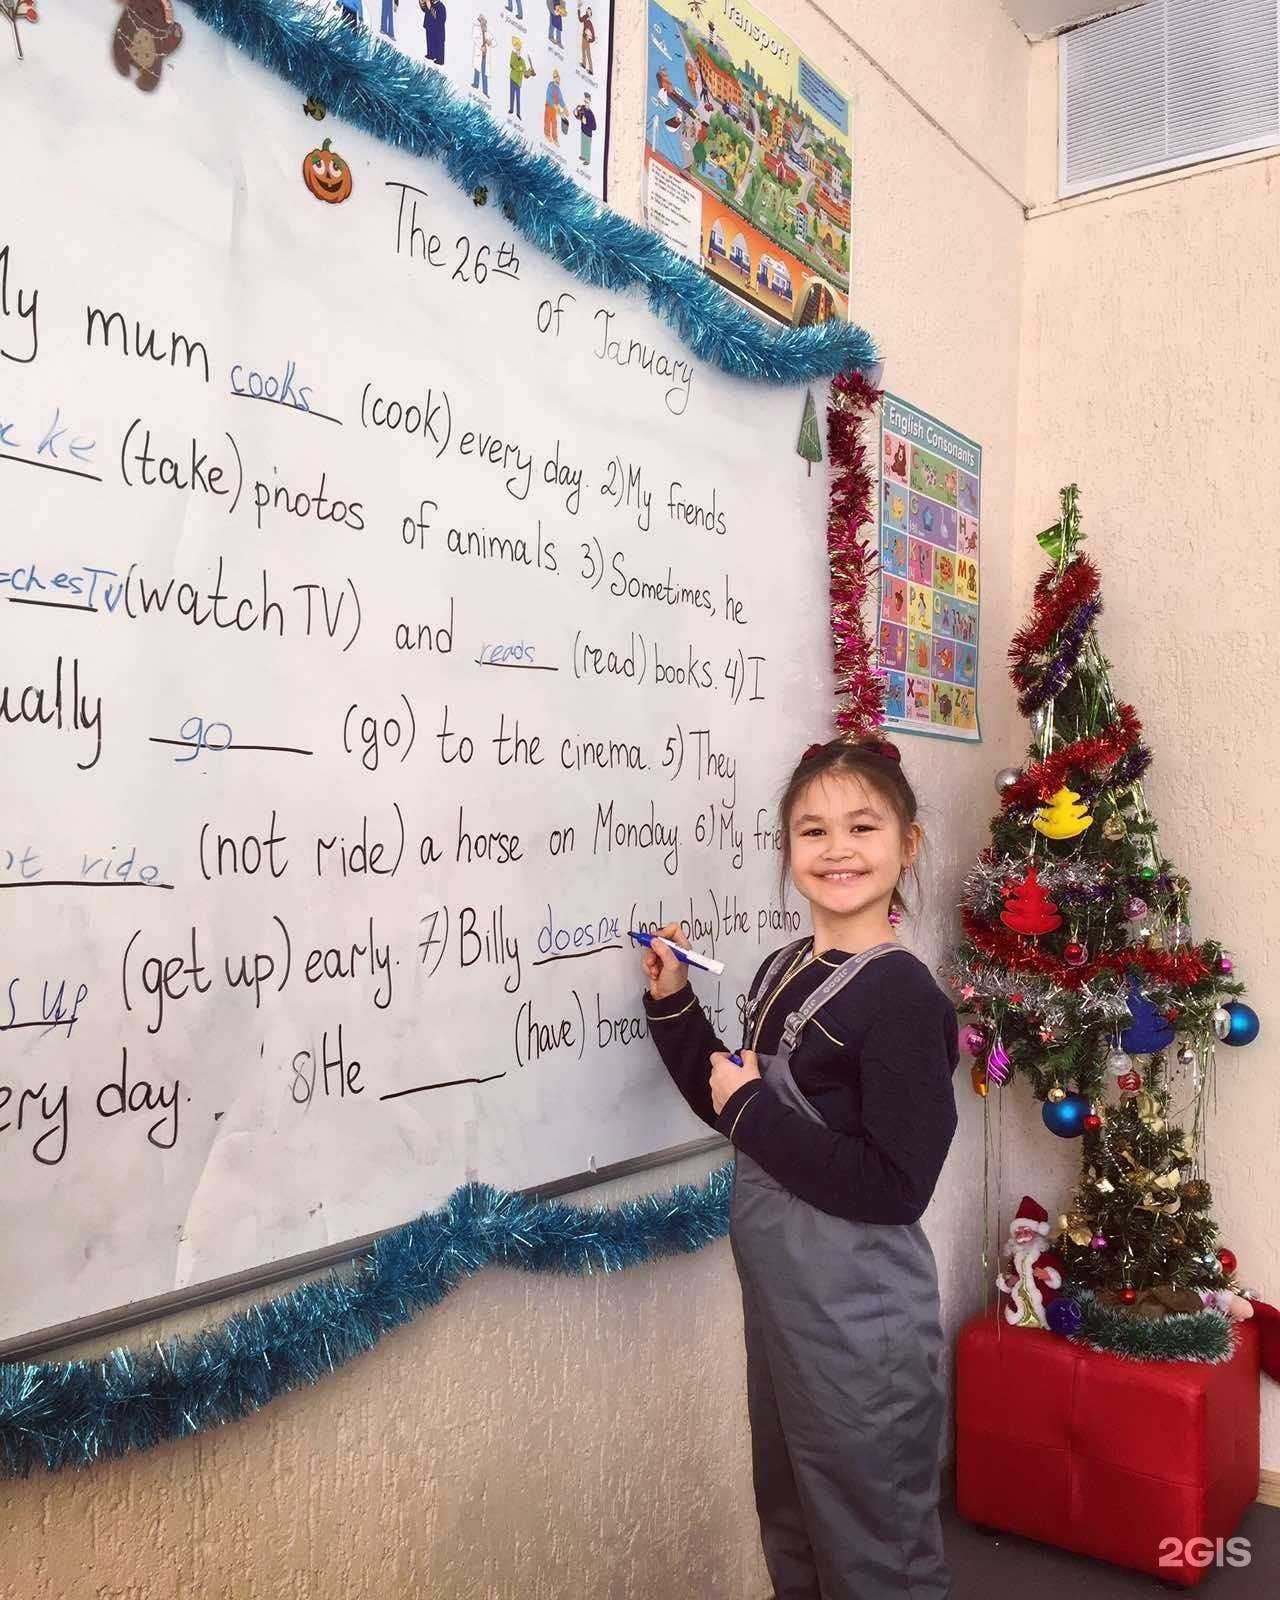 Transport
The 26th
of January
English Consonants
My mum cooks (cook) every day. 2) My friends
take (take) photos of animals. 3) Sometimes, he
watches TV (watch TV) and reads (read) books. 4) I
usually go (go) to the cinema. 5) They
ride (not ride) a horse on Monday. 6) My frie
s up (get up) early. 7) Billy doesnt (not play) the piano
ery day. 8) He ____ (have) brea at 8
2GIS